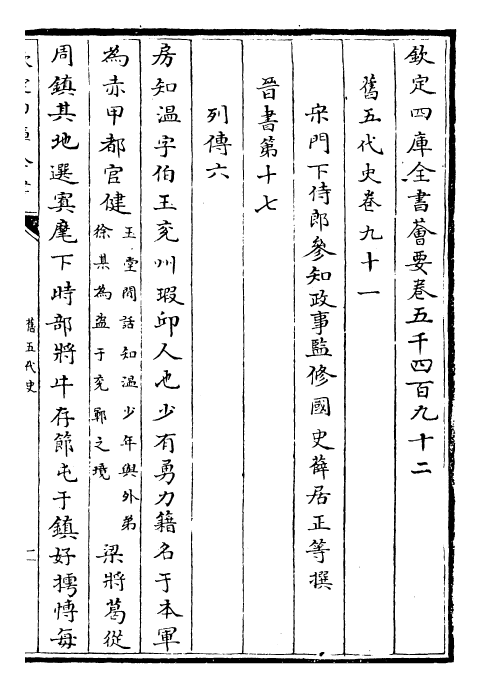 欽定四庫全書薈要卷五千四百九十二
舊五代史卷九十一
宋門下侍郎參知政事監修國史薛居正等撰
晉書第十七
列傳六
房知溫字伯玉兖州瑕邱人也少有勇力籍名于本軍
為赤甲都官健
玉堂閒話知溫少年與外弟
徐某為盗于兖鄆之境
梁將葛從
周鎮其地選寘麾下時部將牛存節屯于鎮好摴愽每
舊五代史
一